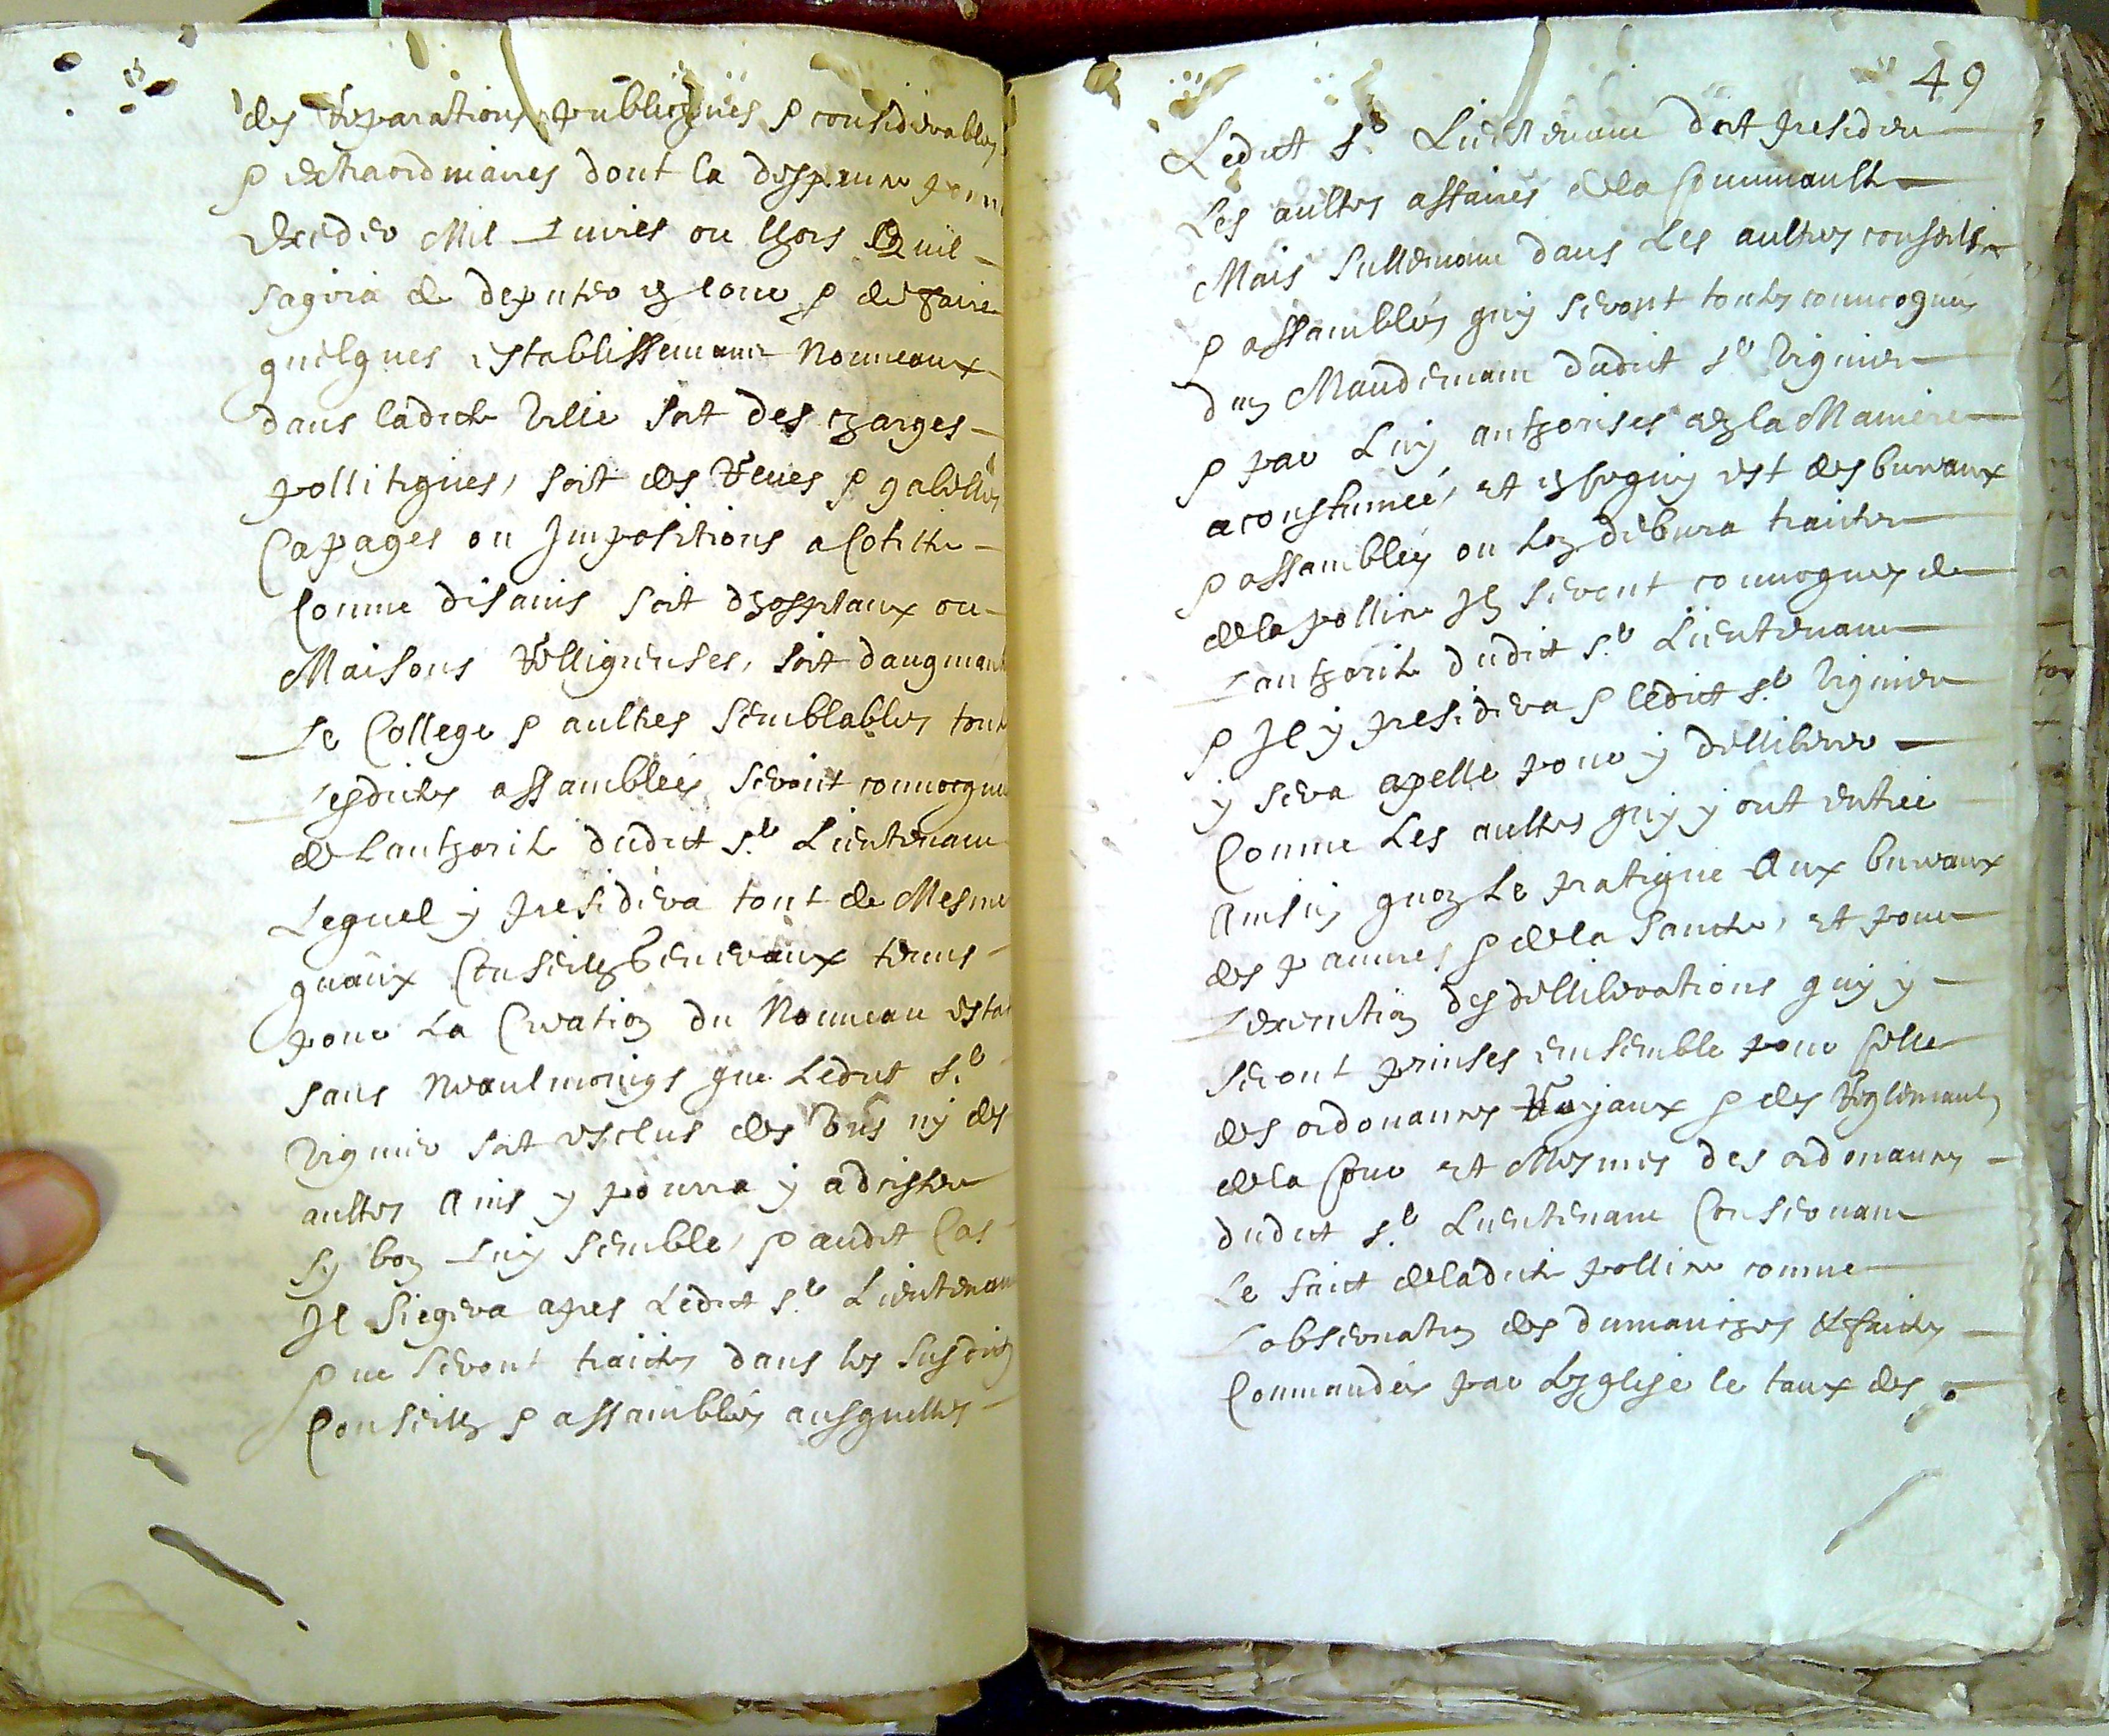 des reparations publicques & considerables
& extraordinaires dont la despance
exceder Mil Livres ou lhors Quil
sagira de deputer en cour & de faire
quelques establissemant Nouveaux
dans ladicte Ville soit des charges
pollitiques, soit des Reves & gabelles
Capages ou Impositions a Cottitte
Comme dit auis soit dhospitaux ou
Maisons Relligieuses, soit daugmant
Le College & aultres semblables tout
Lesdictes assamblees seront convocque
de Lauthorite dudict Sr Lieutenant
Lequel y presidera tout de Mesme
quaux Conseilz Generaux tenus
pour La Creation du Nouveau estat
sans neaulmoings que Ledict Sr
Viguier soit esclus des Uns ny des
aultres Ains y pourra y adcister
sy bon Luy semble, & audit Cas
Il siegera apres Ledict Sr Lieutenant
& ne seront traictes dans les susdits
Conseilz & assamblees ausquelles
49
Ledict Sr Lieutenant doit presider
Les aultres affaires de la Communaulte
Mais sullemant dans Les aultres conseilz
& assamblees quy seront toutes convoquees
du Mandemant dudict Sr Viguier
& par Luy authorises en la Maniere
acoustumee, et en ce quy est des bureaux
& assamblees ou Lon debvra traicter
de la pollice Ilz seront convoques de
Lauthorite dudict Sr Lieutenant
& Il y presidera & ledict Sr Viguier
y sera apelle pour y delliberer
Comme Les aultres quy y ont entree
Ainsin quon Le pratique Aux bureaux
des pauvres & de la sancte, et pour
Lexecution des delliberations quy y
seront prinses ensemble pour celle
des ordonances Royaux & des Reglemantz
de la Cour et Mesmes des ordonances
dudict Sr Lieutenant Consernant
Le faict de ladicte pollice comme
Lobservation des dimanches & faictes
Commandees par Leglise le taux des